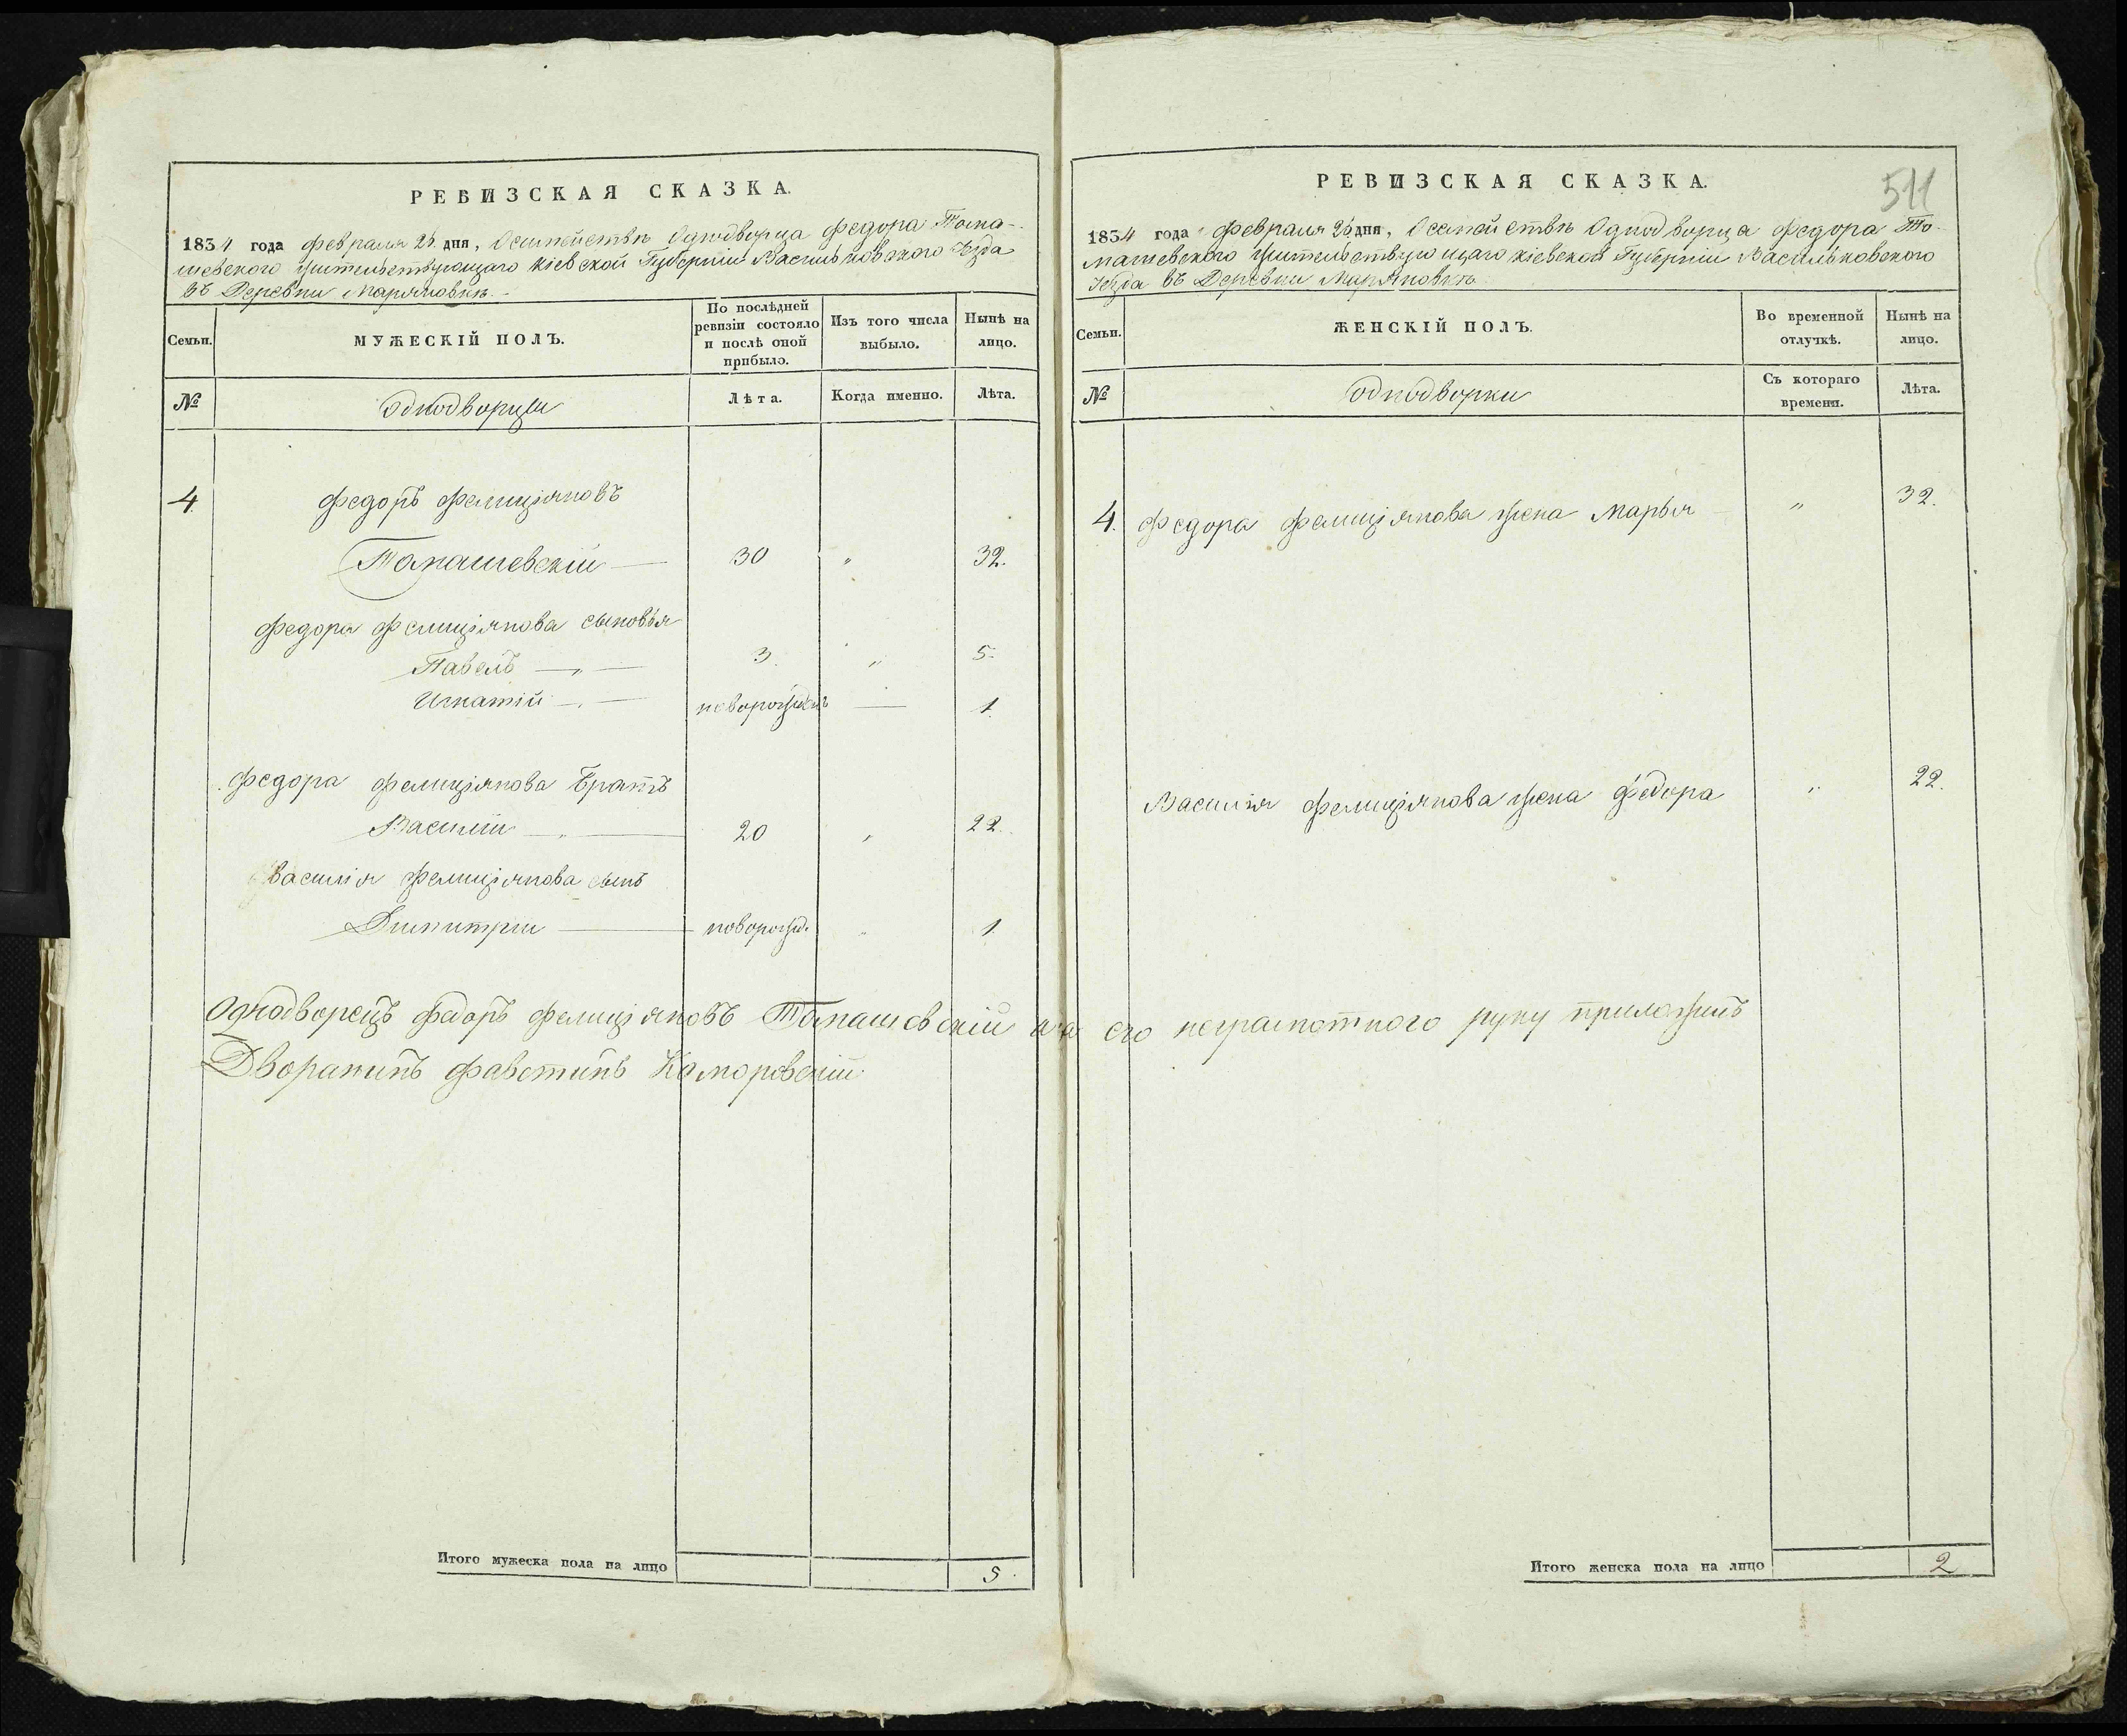 РЕВИЗСКАЯ СКАЗКА.
1834 года февраля 25 дня, Осемействѣ Однодворца Федора Тома-
шевского жительствующаго Кіевской Губерніи Васильковского Уѣзда
въ Деревни Маряновкѣ.
Семьи.
МУЖЕСКІЙ ПОЛЪ.
По послѣдней ревизіи состояло и послѣ оной прибыло.
Изъ того числа выбыло.
Нынѣ на лицо.
№
однодворцы
Лѣта.
Когда именно.
Лѣта.
4
Федоръ Фелиціяновъ
Томашевскій — 30 „ 32.
Федора Фелиціянова сыновья
Павелъ — „ — 3. „ 5
Игнатій — „ — новорожденъ — 1.
Федора Фелиціянова братъ
Василій — „ — 20 „ 22.
Василія Фелиціянова сынъ
Димитрій — новорожд. „ 1
Однодворецъ Федоръ Фелиціяновъ Томашевскій а за его неграмотного руку приложилъ
Дворанинъ Фавстинъ Каморовскій
Итого мужеска пола на лицо 5.
511
РЕВИЗСКАЯ СКАЗКА.
1834 года Февраля 25 дня, Осемействѣ Однодворца Федора То-
машевского жительствующаго Кіевской Губерніи Васильковского
Уѣзда въ Деревни Маряновкѣ
Семьи.
ЖЕНСКІЙ ПОЛЪ.
Во временной отлучкѣ.
Нынѣ на лицо.
№
однодворки
Съ котораго времени.
Лѣта.
4. Федора Фелиціянова жена Марья — „ 32.
Василія Фелиціянова жена Федора „ 22.
Итого женска пола на лицо 2